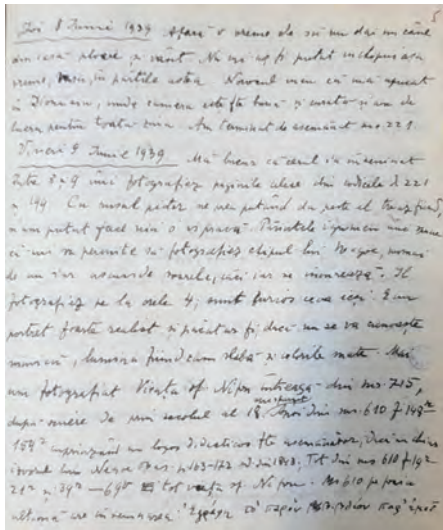 Joi 8 Iunie 1939 Afară o vreme de să nu dai un câine
din casă ploaie și vânt. Nu mi-aș fi putut închipui așa
vreme, în părțile astea. Norocul meu că m-a apucat
în Dionisiu, unde camera este f. bună și curată și am de
lucru pentru toată ziua. Am terminat de asemănat ms. 221.
Vineri 9 Iunie 1939. Mă bucur că cerul s-a înseninat
între 8 și 9 îmi fotografiez paginile alese din codicele 221
și 194. Cu musul pictor ne peste fiind
n-am putut face nicio ispravă. Părintele o mare
că nu permite să fotografiez chipul lui Neagoe, numai
de nu s-ar ascunde soarele, căci iar se înnorează. Îl
fotografiez pe la orele 4, sunt furios E un
portret foarte reabat și păcat ar fi dacă nu se va cunoaște
lumina fiind cam slabă și colorile mate. Mai
am fotografiat Viața sf. Nifon întreagă din ms. 715,
după scriere de prin secolul al 18 început apoi din ms. 610 f. 149
154 cuprinzând un logos didacticos f. asemănător, dacă nu chiar
isvorul lui Neagoe p. 163-172 ed. din 1843. Tot din ms 610 f. 19
21 și 39 — 69 tot viața sf. Nifon. Ms 610 pe foaia
ultimă are însemnarea: Ἐγράφη τὸ παρὸν παρ' ἐμοῦ